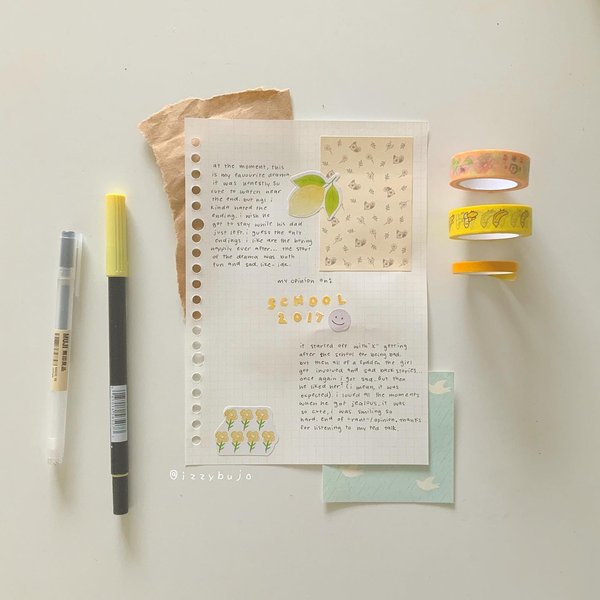 at the moment, this
is my favourite drama.
it was honestly so
cute to watch near
the end. but ngl i
kinda hated the
ending. i wish he
got to stay while his dad
just left. i guess the only
endings i like are the boring
happily ever after... the start
of the drama was both
fun and sad like-idk.
my opinion on:
SCHOOL
2017
it started off with "x" getting
after the school for being bad.
but then all of a sudden the girl
got involved and sad back stories...
once again i got sad. but then
he liked her! (i mean, it was
expected). i loved all the moments
when he got jealous..it was
so cute, i was smiling so
hard. end of -rant-/opinion, thanks
for listening to my ted talk.
@izzybujo
MUJI 無印良品